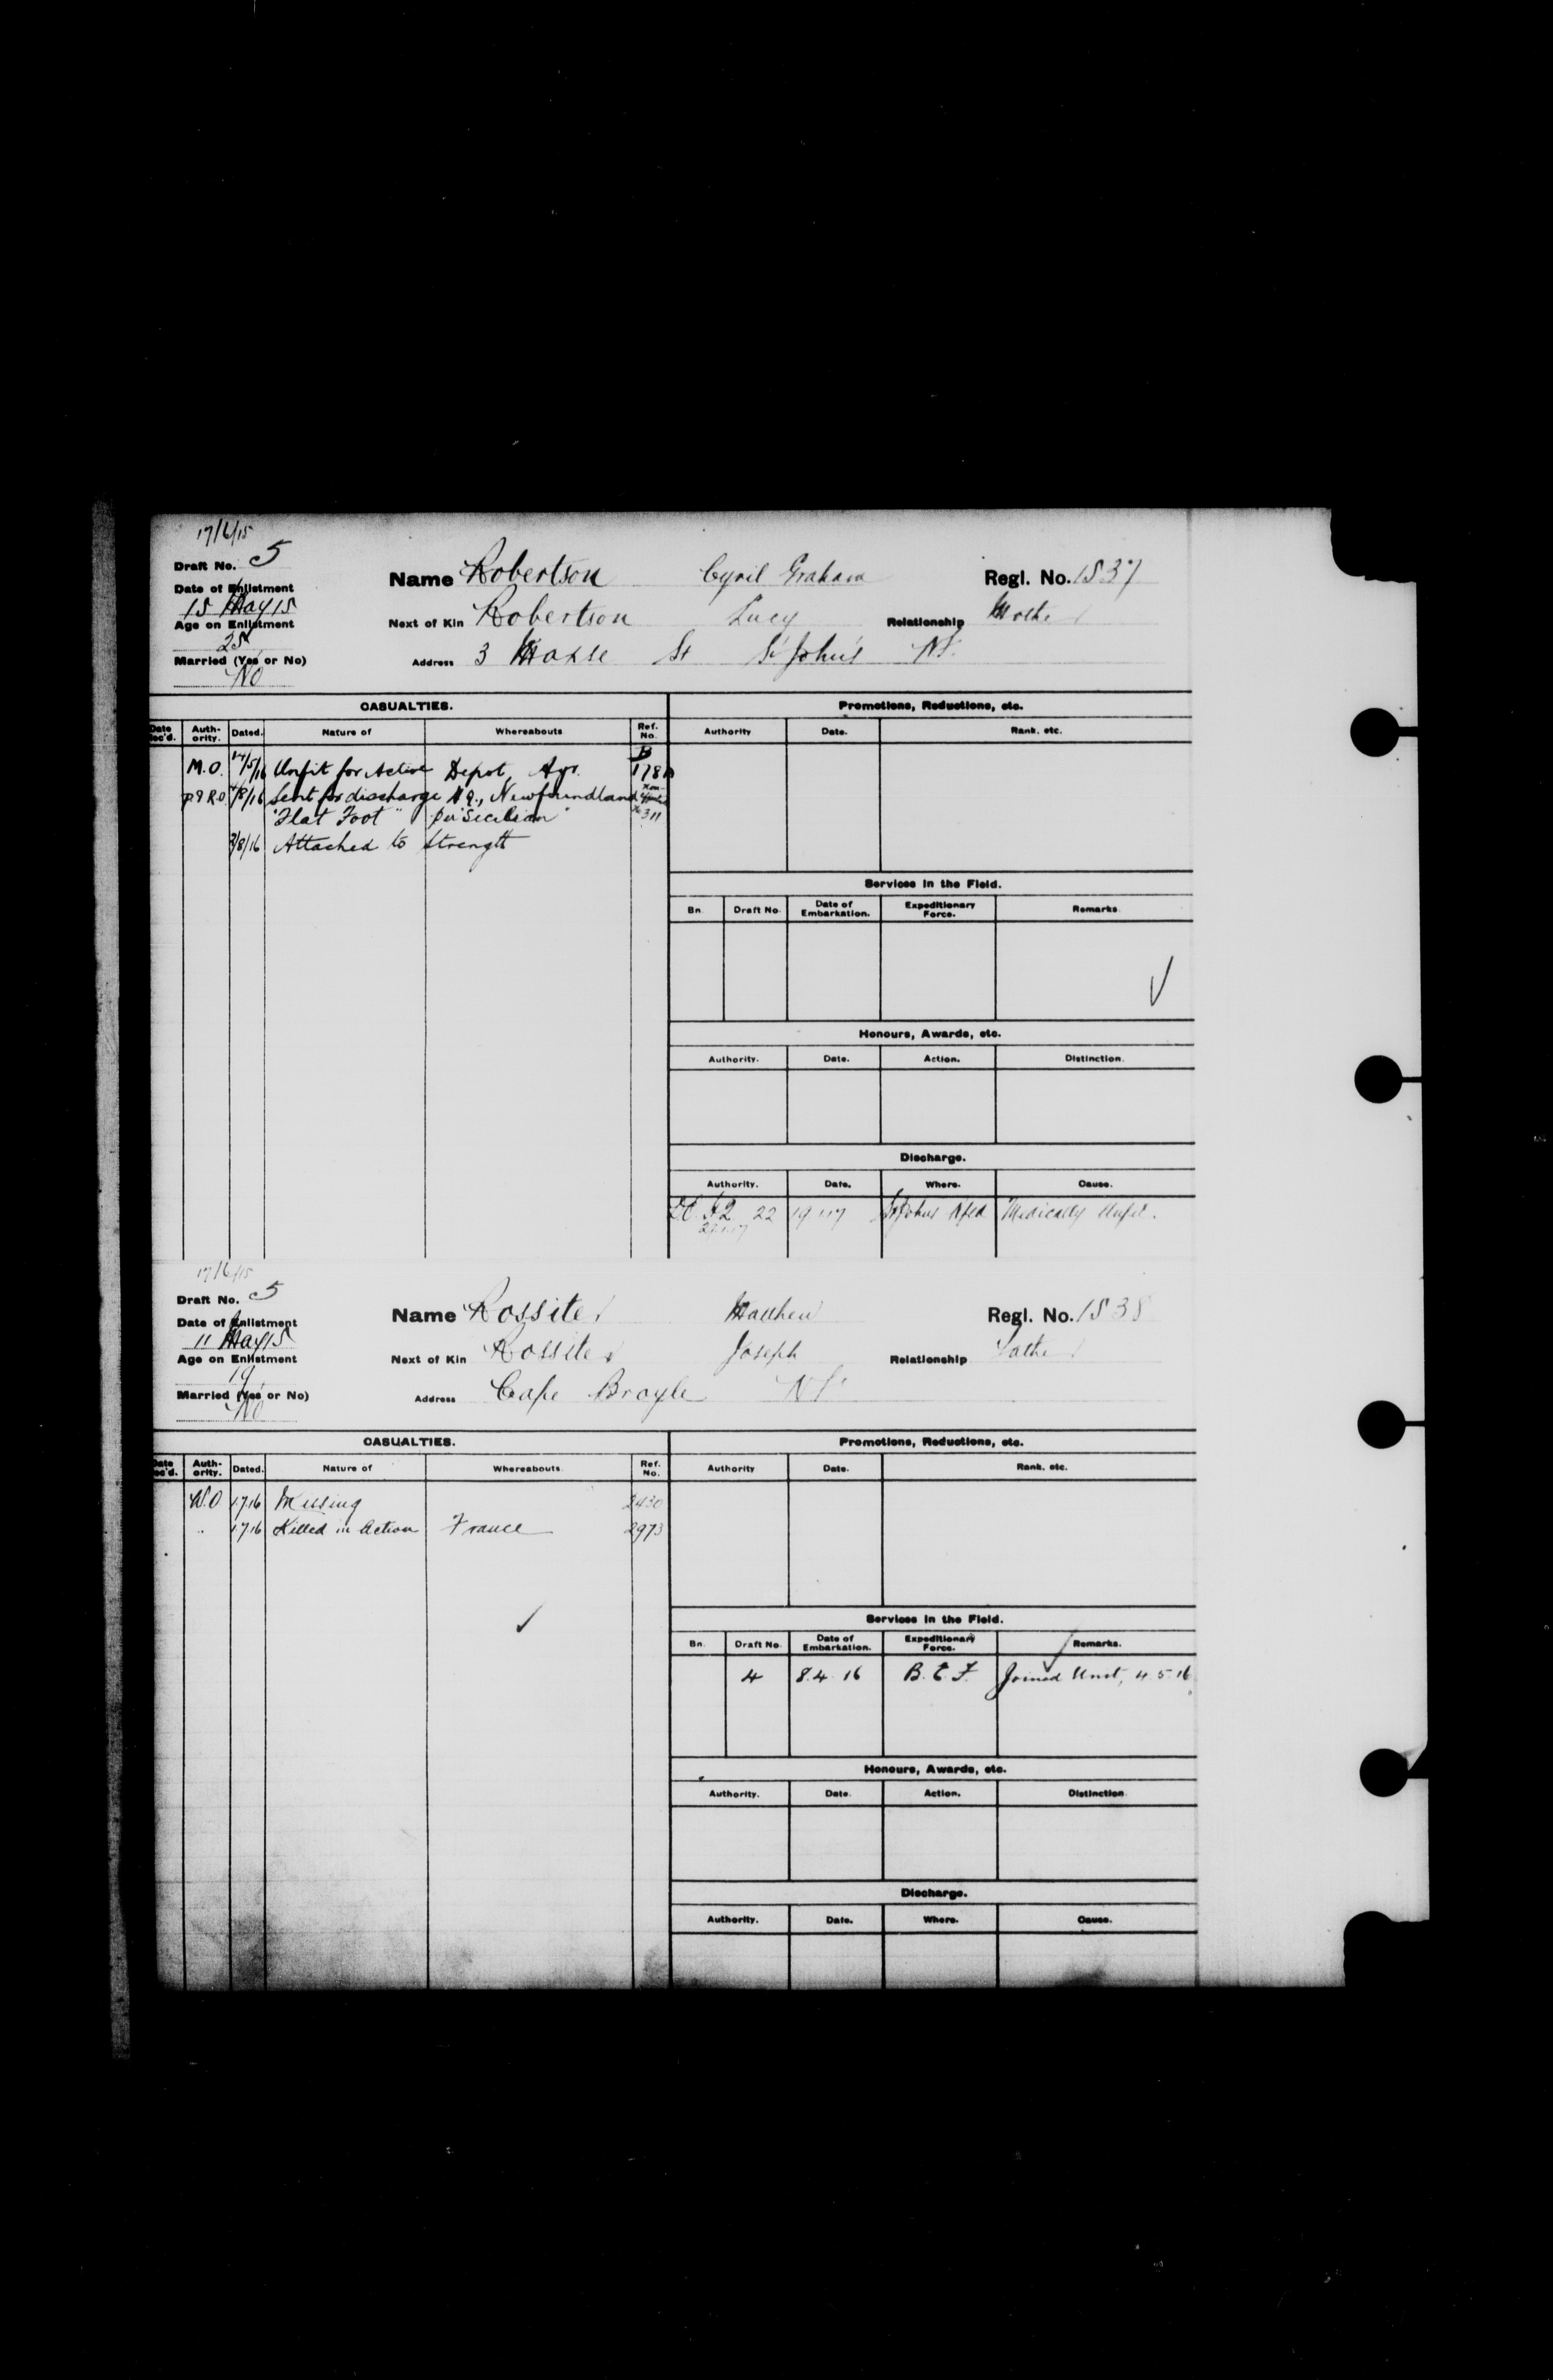 17/6/15
Draft No. 5
Date of Enlistment
15 May 15
Age on Enlistment
25
Married (Yes or No)
No
Name Robertson Cyril Graham Regl. No. 1537
Next of Kin Robertson Lucy Relationship Mother
Address 3 St St John's Nf.
CASUALTIES. Promotions, Reductions, etc.
Date Rec'd. Auth-ority. Dated. Nature of Whereabouts Ref. No. Authority Date. Rank. etc.
M.O. 14/5/16 Unfit for Active Depot, Ayr. B 178
P&R.O. 4/8/16 Sent for discharge Hq., Newfoundland
"Flat Foot" per "Sicilian" 311
3/8/16 Attached to Strength
Services in the Field.
Bn. Draft No. Date of Embarkation. Expeditionary Force. Remarks.
Honours, Awards, etc.
Authority. Date. Action. Distinction.
Discharge.
Authority. Date. Where. Cause.
22 19 1 17 St Johns Nfld Medically Unfit.
17/6/15
Draft No. 5
Date of Enlistment
11 May 15
Age on Enlistment
19
Married (Yes or No)
No
Name Rossiter Matthew Regl. No. 1538
Next of Kin Rossiter Joseph Relationship Father
Address Cape Broyle Nf.
CASUALTIES. Promotions, Reductions, etc.
Date Rec'd. Auth-ority. Dated. Nature of Whereabouts. Ref. No. Authority Date. Rank. etc.
W.O 1.7.16 Missing 2430
" 1.7.16 Killed in Action France 2973
Services in the Field.
Bn. Draft No. Date of Embarkation. Expeditionary Force. Remarks.
4 8.4.16 B.E.F. Joined Unit, 4.5.16
Honours, Awards, etc.
Authority. Date. Action. Distinction
Discharge.
Authority. Date. Where. Cause.